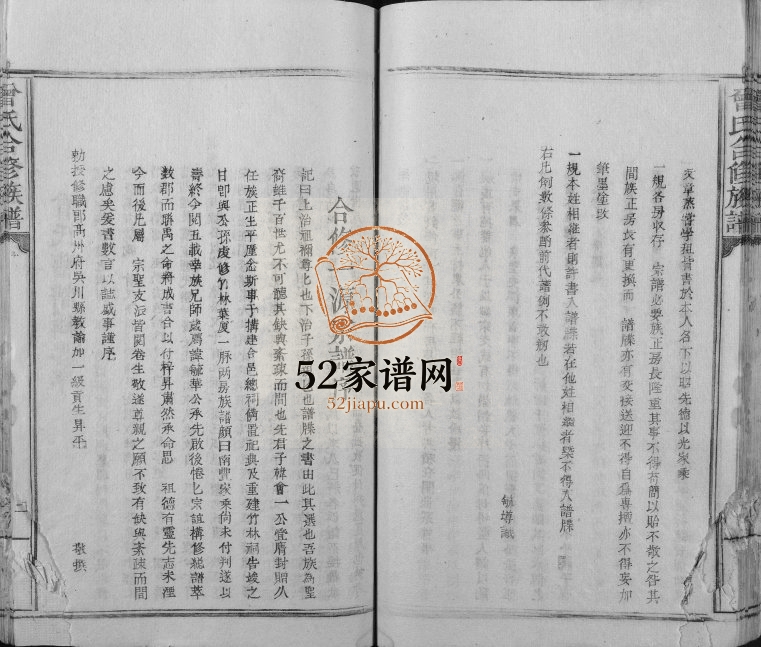 曾氏合修族譜
文章熬皆學班皆書於本人名下以昭先德以光家乘
一規各房收存 宗譜必要族正房長隆重其事不得苟簡以貽不敬之咎其
間族正房長有更換而 譜牒亦有交接送迎不得自爲專擅亦不得妄加
筆墨塗改
一規本姓相繼者則許書入譜牒若在他姓相繼者槩不得入譜牒
右凡例數條參酌前代舊例不敢易也
毓墫識
合修 源 譜
記曰上治祖禰尊尊也下治子孫 也譜牒之書由此其選也吾族為聖
裔雖千百世尤不可聽其缺與紊疎而問也先君子韓會一公登膺封贈久
任族正生平屢念斯事于搆建合邑總祠俻置祀典及重建竹林祠告竣之
日卽與公孫虔修竹林葉厦一脉兩房族譜顏曰南豐家乘尚未付判遂以
壽終今閱五載幸族兄師歲薦諱毓華公承先啟後惓惓宗誼搆修總譜萃
數郡而聯禺之命將成書合以付梓昇肅然承命思 祖德有靈先志未湮
今而後凡屬 宗聖支派皆閱卷生敬遂尊親之願不致有缺與紊疎而間
之慮矣爰書數言以誌盛事謹序
勅授修職郎高州府吳川縣教諭加一級貢生昇平 敬撰
曾氏合修族譜
52家谱网
52jiapu.com